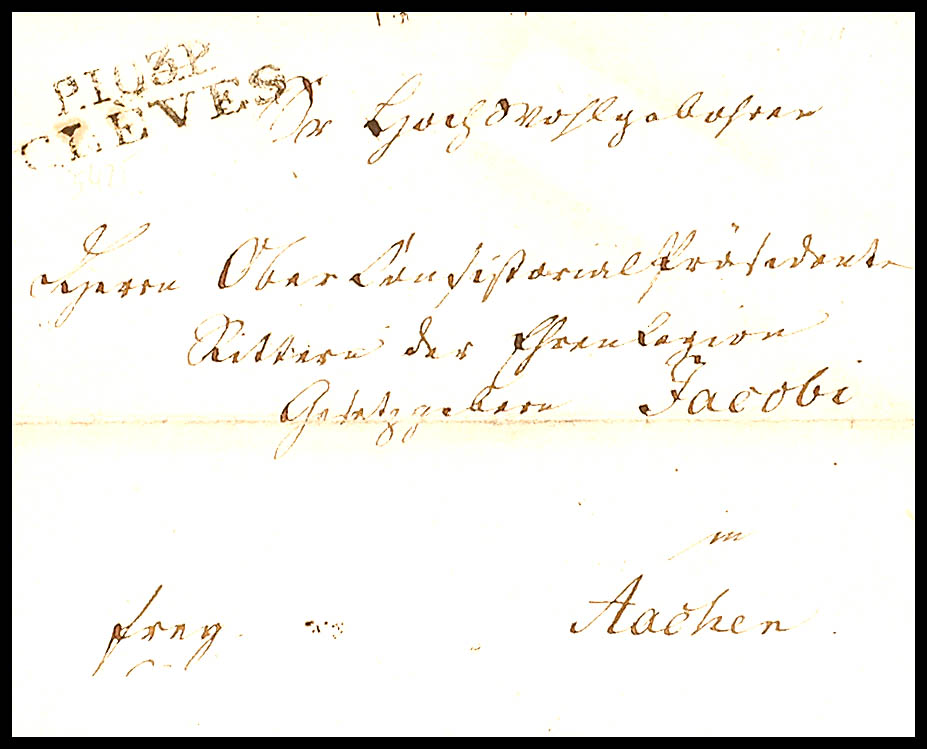 P.103.P.
CLÈVES
Sr HochWohlgebohren
Herrn OberConsistorialPräsidenten
Rittern der Ehrenlegion
Gesetzgebern Jacobi
in
Aachen
frey